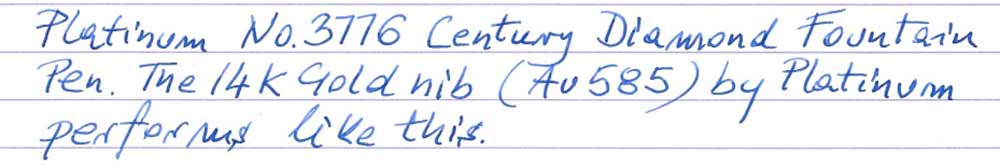 Platinum No. 3776 Century Diamond Fountain
Pen. The 14K Gold nib (Au585) by Platinum
performs like this.